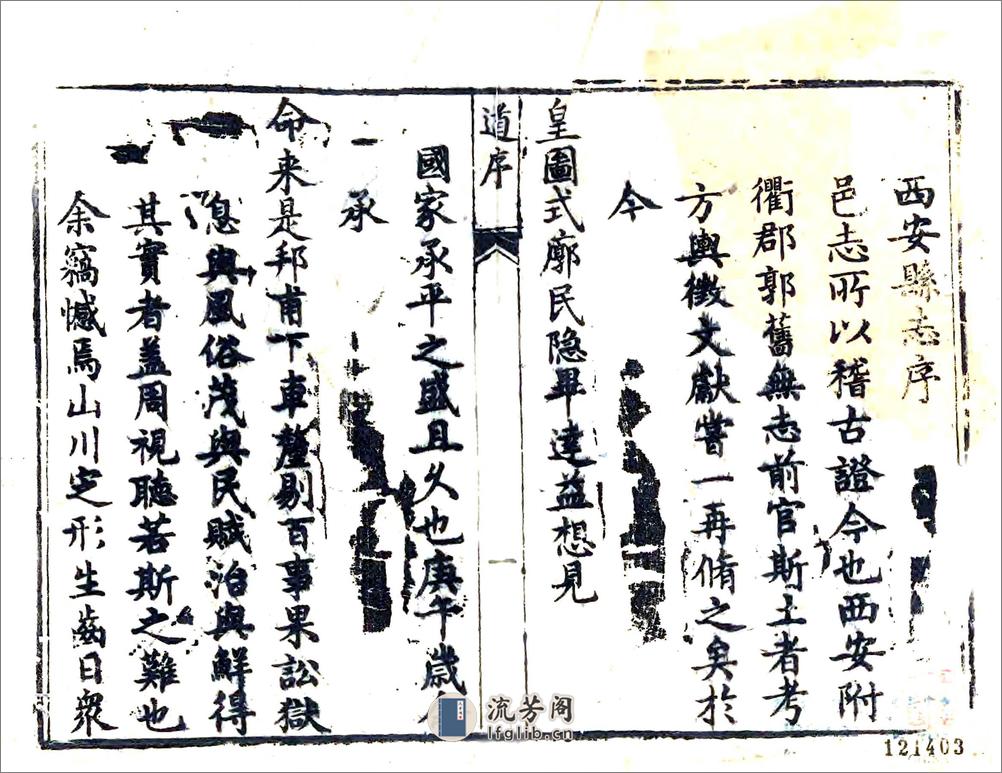 西安縣志序
邑志所以稽古證今也西安附
衢郡郭舊無志前官斯土者考
方輿徵文獻嘗一再脩之矣於
今
皇圖式廓民隐畢達益想見
道序
一
國家承平之盛且久也庚午歲
承
命来是邦甫下車釐剔百事果訟獄
息與風俗茂與民賦治與鮮得
其實者盖周視聽若斯之難也
余竊憾焉山川定形生齒日衆
流芳阁
lfglib.cn
121403